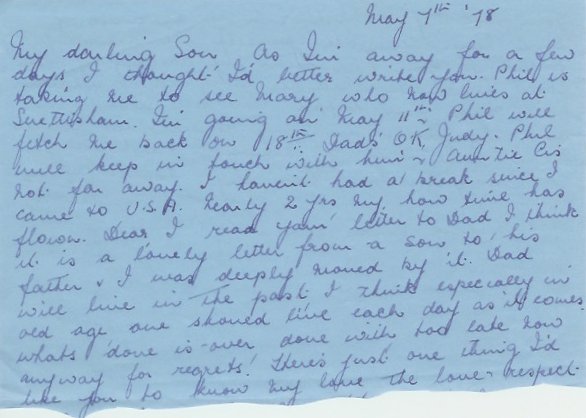 May 7th '78
My darling Son, As I'm away for a few
days I thought I'd better write you. Phil is
taking me to see Mary who now lives at
Snettisham. I'm going on May 11th Phil will
fetch me back on 18th. Dad's OK, Judy. Phil
will keep in touch with him & Auntie Cis
not far away. I haven't had a break since I
came to U.S.A. nearly 2 yrs my, how time has
flown. Dear I read your letter to Dad I think
it is a lovely letter from a son to his
father & I was deeply moved by it. Dad
will live in the past I think especially in
old age one should live each day as it comes
whats done is over done with too late now
anyway for regrets. There's just one thing I'd
like you to know my love the love & respect